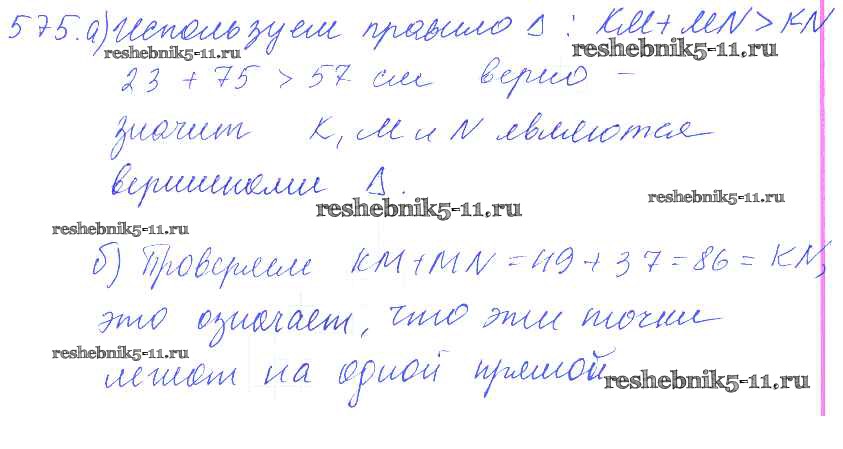 575. а) Используем правило Δ: KM + MN > KN
reshebnik5-11.ru
reshebnik5-11.ru
23 + 75 > 57 см верно –
значит K, M и N являются
вершинами Δ.
reshebnik5-11.ru
reshebnik5-11.ru
reshebnik5-11.ru
б) Проверяем KM + MN = 49 + 37 = 86 = KN,
это означает, что эти точки
reshebnik5-11.ru
лежат на одной прямой
reshebnik5-11.ru